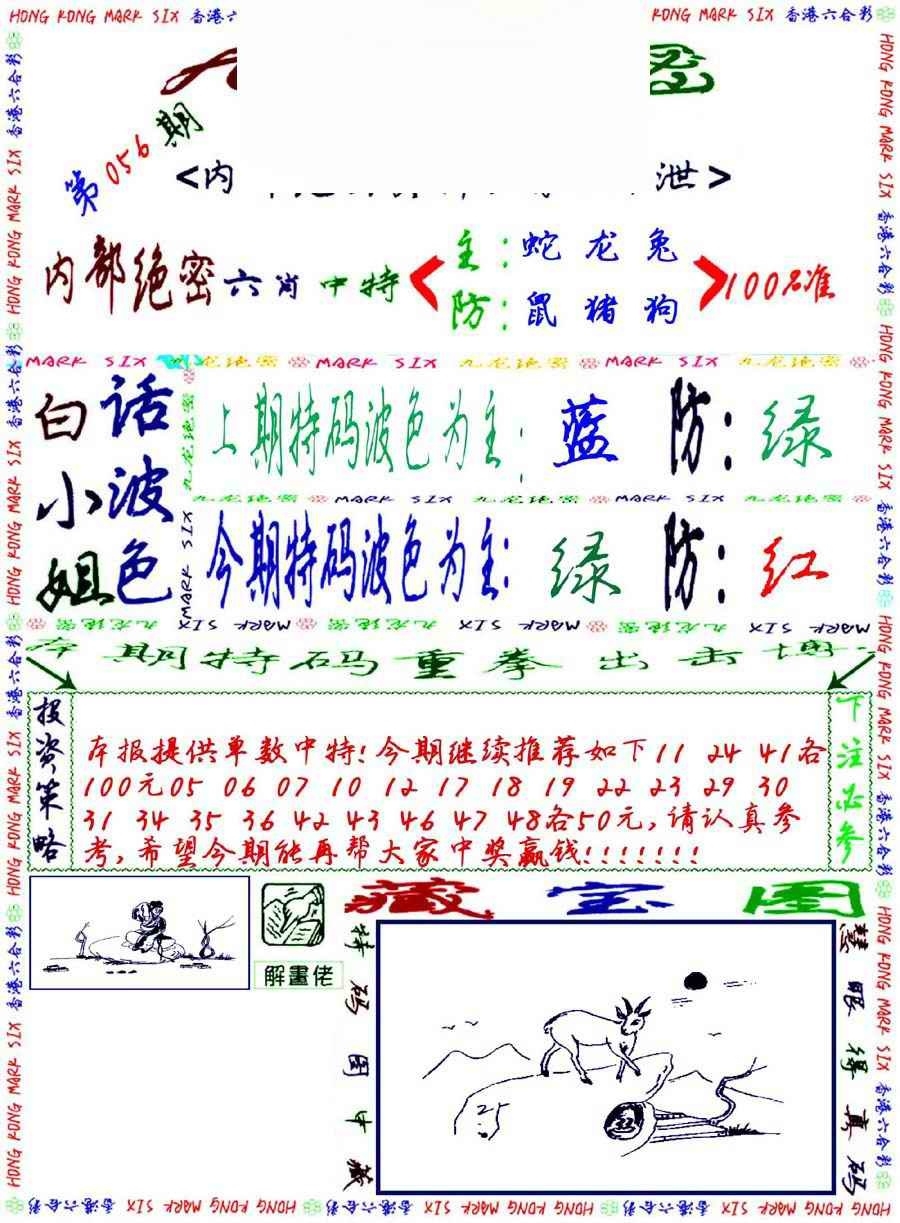 HONG KONG MARK SIX 香港六合彩
KONG MARK SIX 香港六合彩
第056期
<内
泄>
内部绝密六肖中特
主:蛇龙兔
防:鼠猪狗
100%准
MARK SIX 九龙绝密 MARK SIX 九龙绝密 MARK SIX 九龙绝密
白小姐
话波色
上期特码波色为主: 蓝 防: 绿
九龙绝密 MARK SIX 九龙绝密 MARK SIX 九龙绝密
今期特码波色为主: 绿 防: 红
MARK SIX 九龙绝密 MARK SIX 九龙绝密 MARK SIX 九龙绝密
本期特码重拳出击
投资策略
本报提供单数中特!今期继续推荐如下11 24 41各
100元05 06 07 10 12 17 18 19 22 23 29 30
31 34 35 36 42 43 46 47 48各50元,请认真参
考,希望今期能再帮大家中奖赢钱!!!!!!!
下注必参
解畫佬
藏宝图
特码图中藏
25
慧眼得真码
HONG KONG MARK SIX 香港六合彩